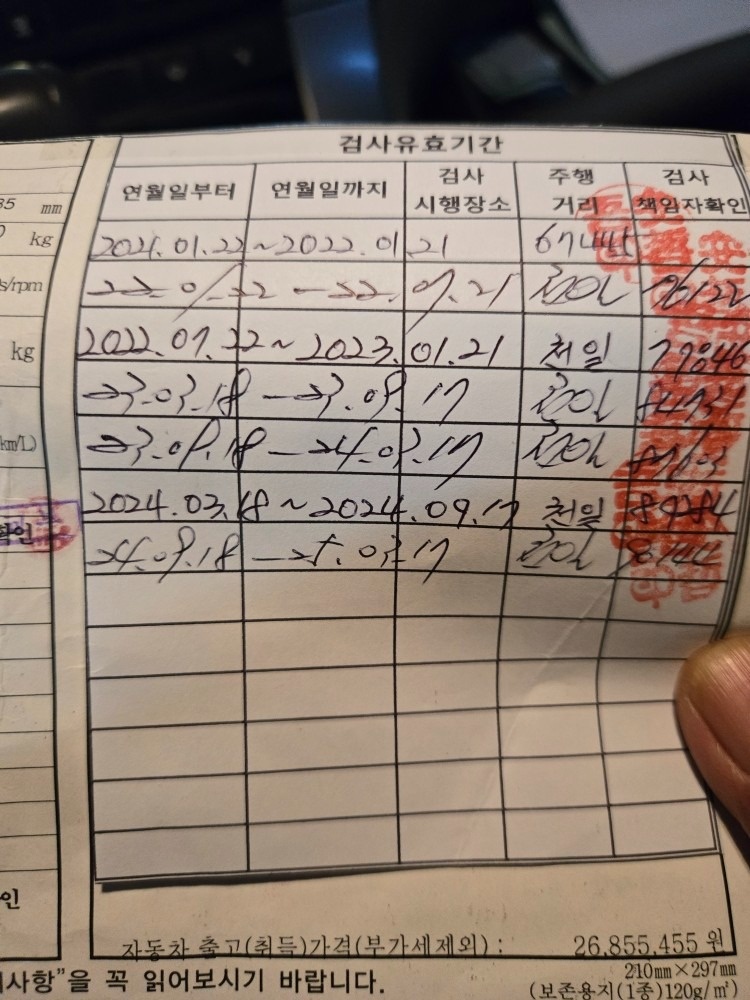 검사유효기간
연월일부터 연월일까지 검사 시행장소 주행 거리 검사 책임자확인
35 mm
kg
2021.01.22 ~ 2022.01.21
s/rpm
22.01.22 - 22.07.21 천일 76122
kg
2022.07.22 ~ 2023.01.21 천일 79046
23.03.18 - 23.09.17 천일
km/L)
23.09.18 - 24.03.17 천일
확인
2024.03.18 ~ 2024.09.17 천일 89284
24.09.18 - 25.03.17 천일
인
자동차 출고(취득)가격(부가세제외) : 26,855,455 원
사항"을 꼭 읽어보시기 바랍니다.
210㎜×297㎜
(보존용지(1종)120g/㎡)